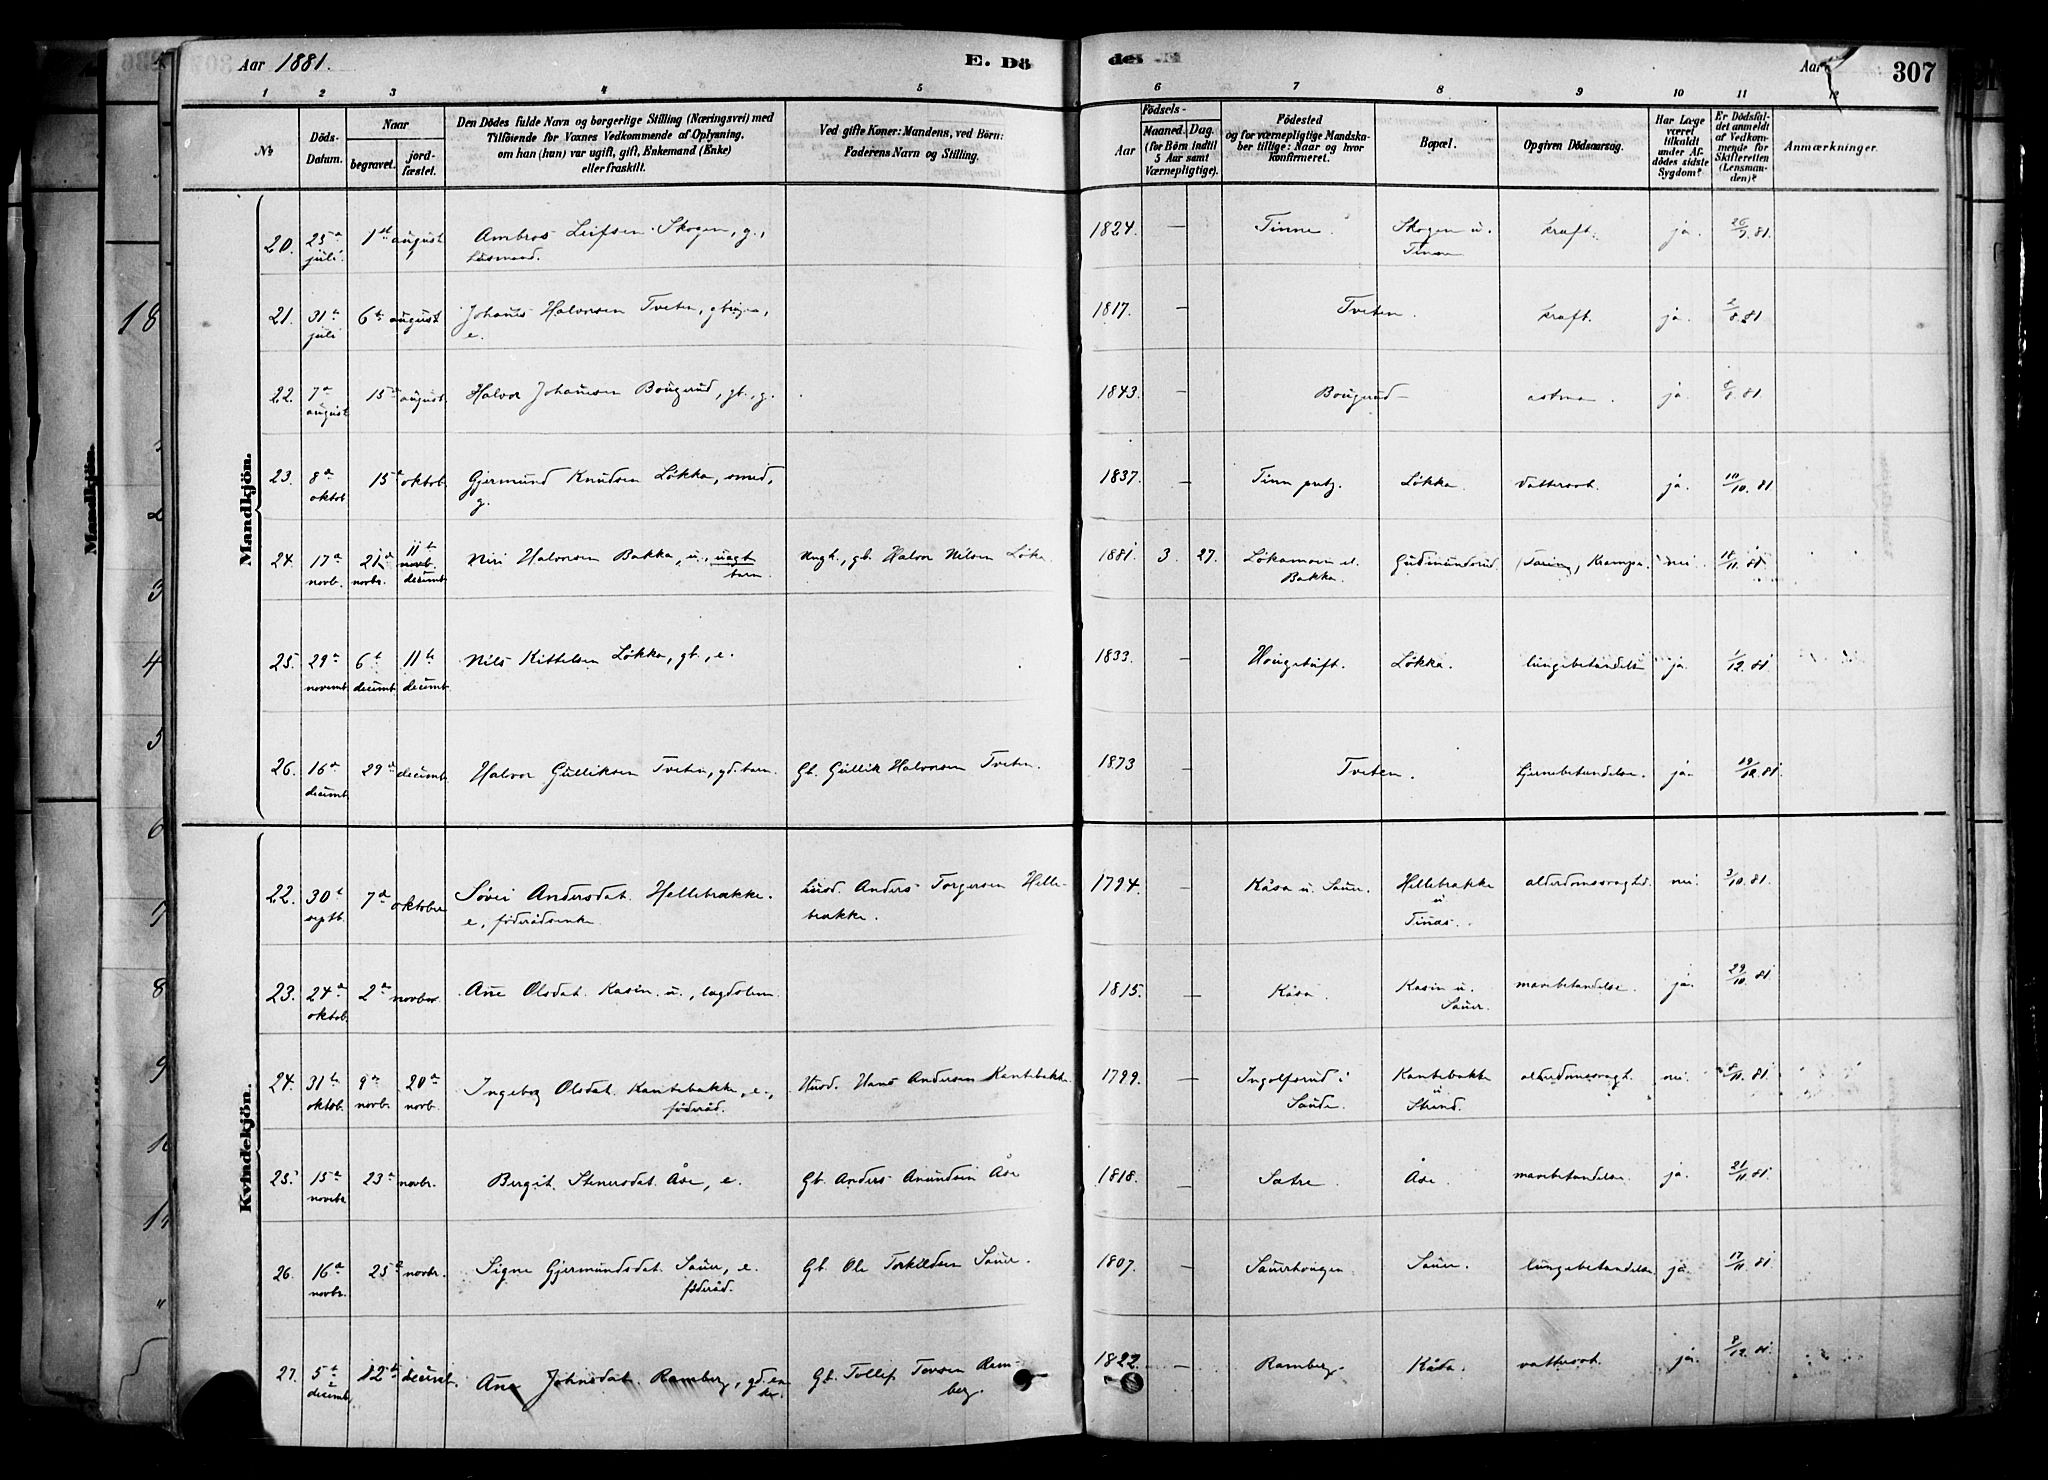 Aar 1881. E. Dö
des
Aar 307
1 2 3 4 5 6 7 8 9 10 11 12
№
Döds-
Datum.
Naar
begravet.
jord-
fæstet.
Den Dödes fulde Navn og borgerlige Stilling (Næringsvei) med
Tilföiende for Voxnes Vedkommende af Oplysning,
om han (hun) var ugift, gift, Enkemand (Enke)
eller fraskilt.
Ved gifte Koner: Mandens, ved Börn:
Faderens Navn og Stilling.
Födsels-
Aar
Maaned. Dag.
(for Börn indtil
5 Aar samt
Værnepligtige).
Födested
og for værnepligtige Mandska-
ber tillige: Naar og hvor
Konfirmeret.
Bopæl.
Opgiven Dödsaarsag.
Har Læge
været
tilkaldt
under Af-
dödes sidste
Sygdom?
Er Dödsfal-
det anmeldt
af Vedkom-
mende for
Skifteretten
(Lensman-
den)?
Anmærkninger.
Mandkjön.
20. 25 juli 1 august Ambros Leifsen Skogen, g., husmand. 1824. — Tinne. Skogen u. Tinne kraft. ja. 26/7.81.
21. 31 juli 6 august Johanes Halvorsen Tveten, e. 1817. — Tveten. kraft. ja. 2/8.81
22. 7 august 15 august. Halvor Johansen Bougerud, gb., g. 1843. — Bougerud astma. ja. 8/8.81
23. 8 oktob 15 oktob. Gjermund Knudsen Løkka, smed, g. 1837. — Tinn pstgj. Løkka. Vattersot. ja. 10/10.81
24. 17 novb. 21 novbr. 11 novb. decemb Halvorsen Bakka, u., uægt barn. Ungk., gb. Halvor Nilsen Løka 1881. 3. 27. Løkamoin el. Bakka. Gudmundsrud. (Tæring), Krampe. nei. 18/11.81
25. 29 novemb 6 decemb. 11 decemb. Nils Kittelsen Løkka, gb., e. 1833. — Hougetuft. Løkka. lungebetændelse ja. 1/12.81
26. 16 decemb 29 decemb. Halvor Gulliksen Tveten, gd. barn. Gb. Gullik Halvorsen Tveten. 1873 Tveten. hjernebetændelse. ja. 19/12.81
Kvindekjön.
22. 30 septb. 7 oktober Andersdat. Hellebrække. e, föderådsenke Husd. Anders Torgersen Helle- brække. 1794. — Kåsa u. Sauer. Hellebrække u Tinæs. alderdomssvaghed. nei. 3/10.81.
23. 24 oktob. 2 novber. Ane Olsdat. Kasin u., lægdslem. 1815. — Kåsa. Kasin u. Sauer. mavebetændelse. ja. 29/10.81
24. 31 oktob. 9 novb. 20 novb. Ingeborg Olsdat. Kantebakke, e., föderåd. Husd. Hans Andersen Kantebakke 1799. — Ingolfsrud i Saude. Kantebakke u Strand. alderdomssvagh. nei. 8/11.81
25. 15 novbr 23 novbr. Bergit Stenersdat. Åse, e. Gb. Anders Anundsen Åse 1818. — Sætre. Åse. mavebetændelse. ja. 21/11.81
26. 16 novbr. 25 novbr. Signe Gjermundsdat. Sauer, e. föderåd. Gb. Ole Torkildsen Sauer. 1807. — Sauerhougen Sauer. lungebetændelse ja. 17/11.81.
27. 5 decemb. 12 decemb. Ane Johnsdat. Ramberg, gd. en- ke. Gb. Tollef Tovsen Ram- berg. 1822. — Ramberg. Kåsa. vattersot. ja. 9/12.81.
Mandkjön.
18
2
3
4
5
6
7
8
9
10
11